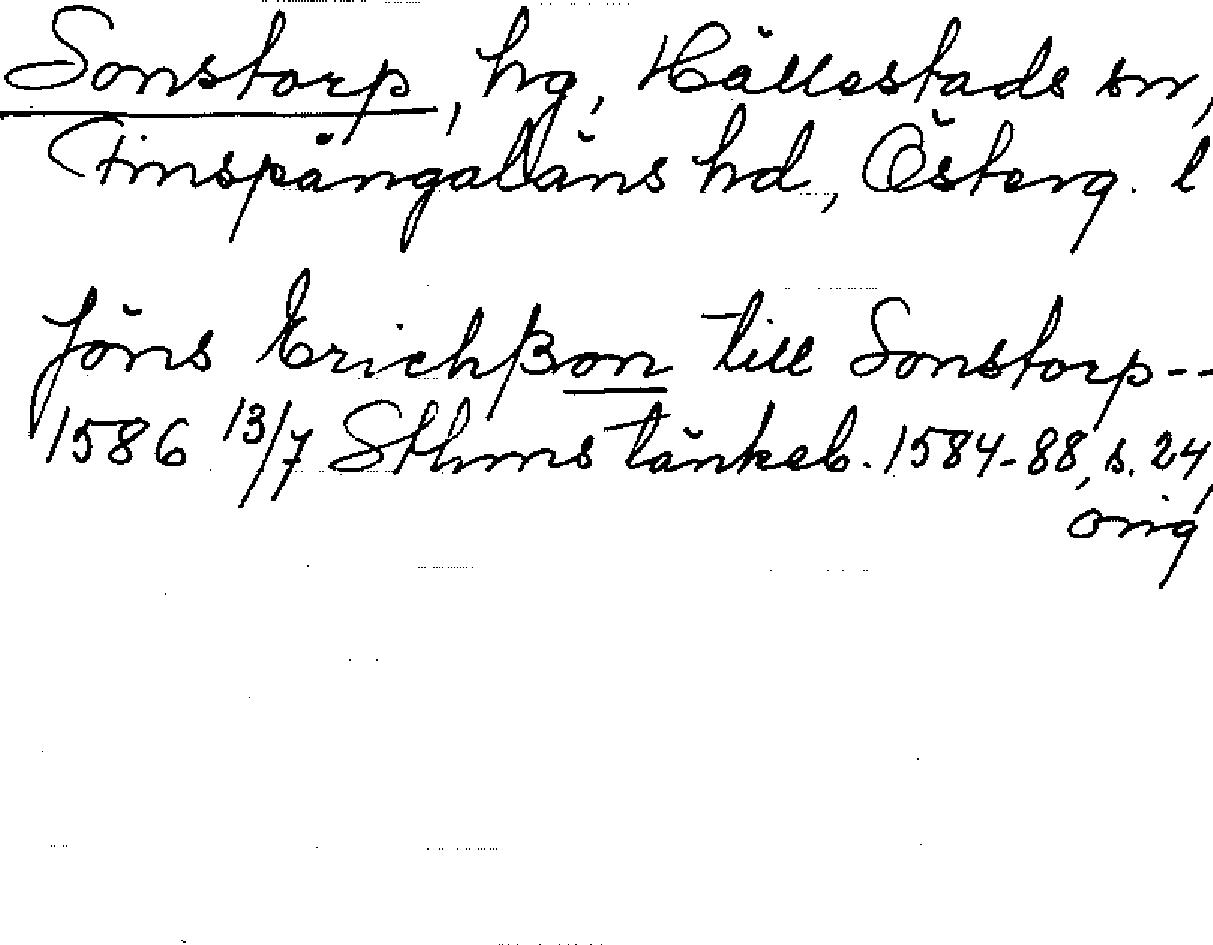 Sonstorp, hg, Hällestads sn,
Finspångaläns hd, Österg. l
Jöns Erichßon till Sonstorp--
1586 13/7 Sthms tänkeb. 1584-88, s. 24,
orig